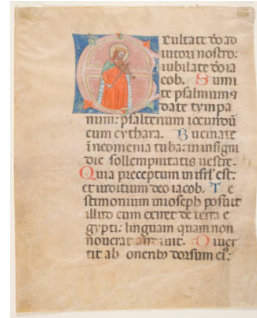 Exultate deo ad
iutori nostro:
iubilate deo ia
cob. Sumi
te psalmum &
date tympa
num: psalterium iocundum
cum cythara. Bucinate
in neomenia tuba: in insigni
die sollempnitatis vestre.
Quia preceptum in isrl est:
et iuditium deo iacob. Te
stimonium in ioseph posuit
illud cum exiret de terra e
gypti: linguam quam non
noverat audivit. Diver
tit ab oneribus dorsum eius: